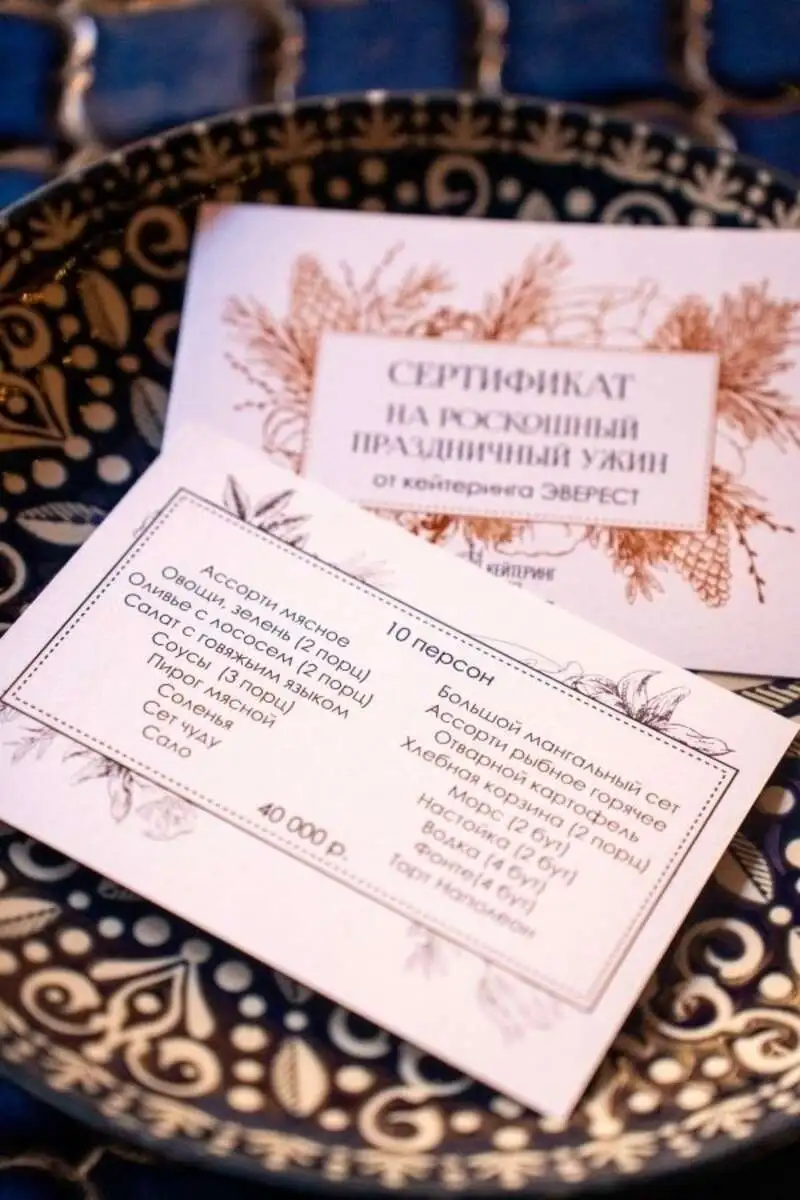 СЕРТИФИКАТ
НА РОСКОШНЫЙ
ПРАЗДНИЧНЫЙ УЖИН
от кейтеринга ЭВЕРЕСТ
КЕЙТЕРИНГ
10 персон
Ассорти мясное
Овощи, зелень (2 порц)
Оливье с лососем (2 порц)
Салат с говяжьим языком
Соусы (3 порц)
Пирог мясной
Соленья
Сет чуду
Сало
40 000 р.
Большой мангальный сет
Ассорти рыбное горячее
Отварной картофель
Хлебная корзина (2 порц)
Морс (2 бут)
Настойка (2 бут)
Водка (4 бут)
Фонте(4 бут)
Торт Наполеон